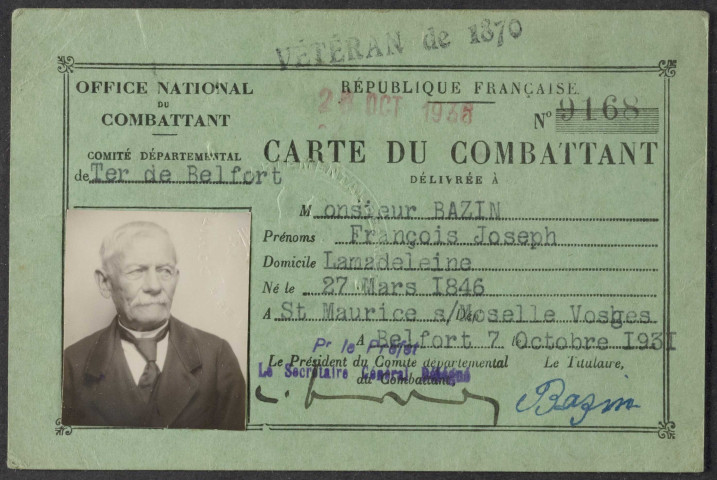 VÉTÉRAN de 1870
OFFICE NATIONAL
DU
COMBATTANT
COMITÉ DÉPARTEMENTAL
de Ter de Belfort
RÉPUBLIQUE FRANÇAISE
OCT
Nº 9168
CARTE DU COMBATTANT
DÉLIVRÉE À
Monsieur BAZIN
Prénoms François Joseph
Domicile Lamadeleine
Né le 27 Mars I846
A St Maurice s/Moselle Vosges
A Belfort 7 Octobre I93I
Pr le Préfet
Le Président du Comité départemental Le Titulaire,
Le Secrétaire Général Délégué
du Combattant,
Bazin